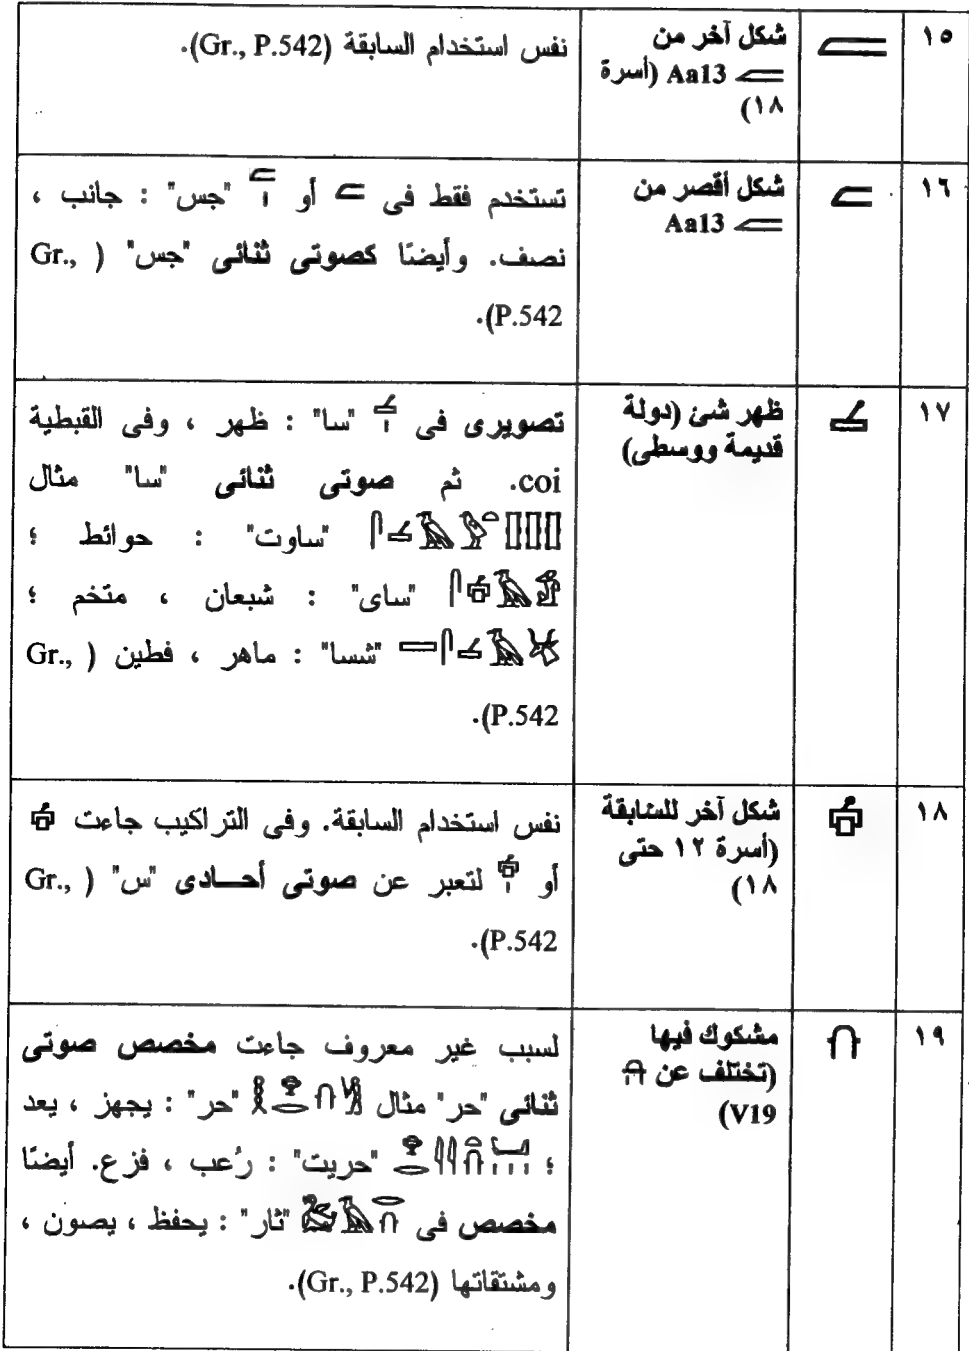 ١٥
𓐞
شكل آخر من
𓐝 Aa13 (أسرة
١٨)
نفس استخدام السابقة (Gr., P.542).
١٦
𓐟
شكل أقصر من
𓐝 Aa13
تستخدم فقط فى 𓐟 أو 𓐟𓏤 "جس" : جانب ،
نصف. وأيضًا كصوتى ثنائى "جس" ( Gr.,
P.542).
١٧
𓐡
ظهر شئ (دولة
قديمة ووسطى)
تصويرى فى 𓐡𓏤 "سا" : ظهر ، وفى القبطية
coi. ثم صوتى ثنائى "سا" مثال
𓋴𓐡𓄿𓅱𓏏𓊅𓊅𓊅 "ساوت" : حوائط ؛
𓋴𓐢𓄿𓀁 "ساى" : شبعان ، متخم ؛
𓈙𓋴𓐡𓄿 "شسا" : ماهر ، فطين ( Gr.,
P.542).
١٨
𓐢
شكل آخر للسابقة
(أسرة ١٢ حتى
١٨)
نفس استخدام السابقة. وفى التراكيب جاءت 𓐢
أو 𓐢𓏤 لتعبر عن صوتى أحــادى "س" ( Gr.,
P.542).
١٩
𓐣
مشكوك فيها
(تختلف عن 𓎅
V19)
لسبب غير معروف جاءت مخصص صوتى
ثنائى "حر" مثال 𓎛𓁷𓂋𓐣 "حر" : يجهز ، يعد
؛ "حريت" : رُعب ، فزع. أيضًا
مخصص فى 𓅷𓄿𓂋𓐣 "ثار" : يحفظ ، يصون ،
ومشتقاتها (Gr., P.542).